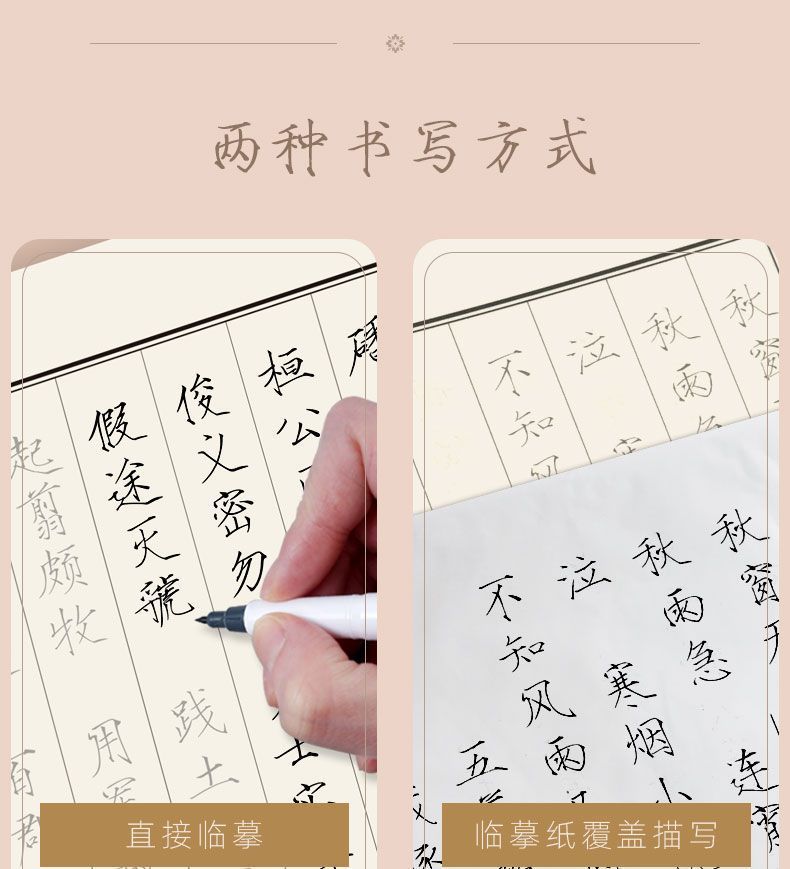 两种书写方式
桓公
俊乂密勿
假途灭虢
践土
起翦颇牧
用军
百郡
秋窗
秋雨
泣
不知风
秋窗
秋雨急
连
泣
寒烟小
不知风雨
五
直接临摹
临摹纸覆盖描写